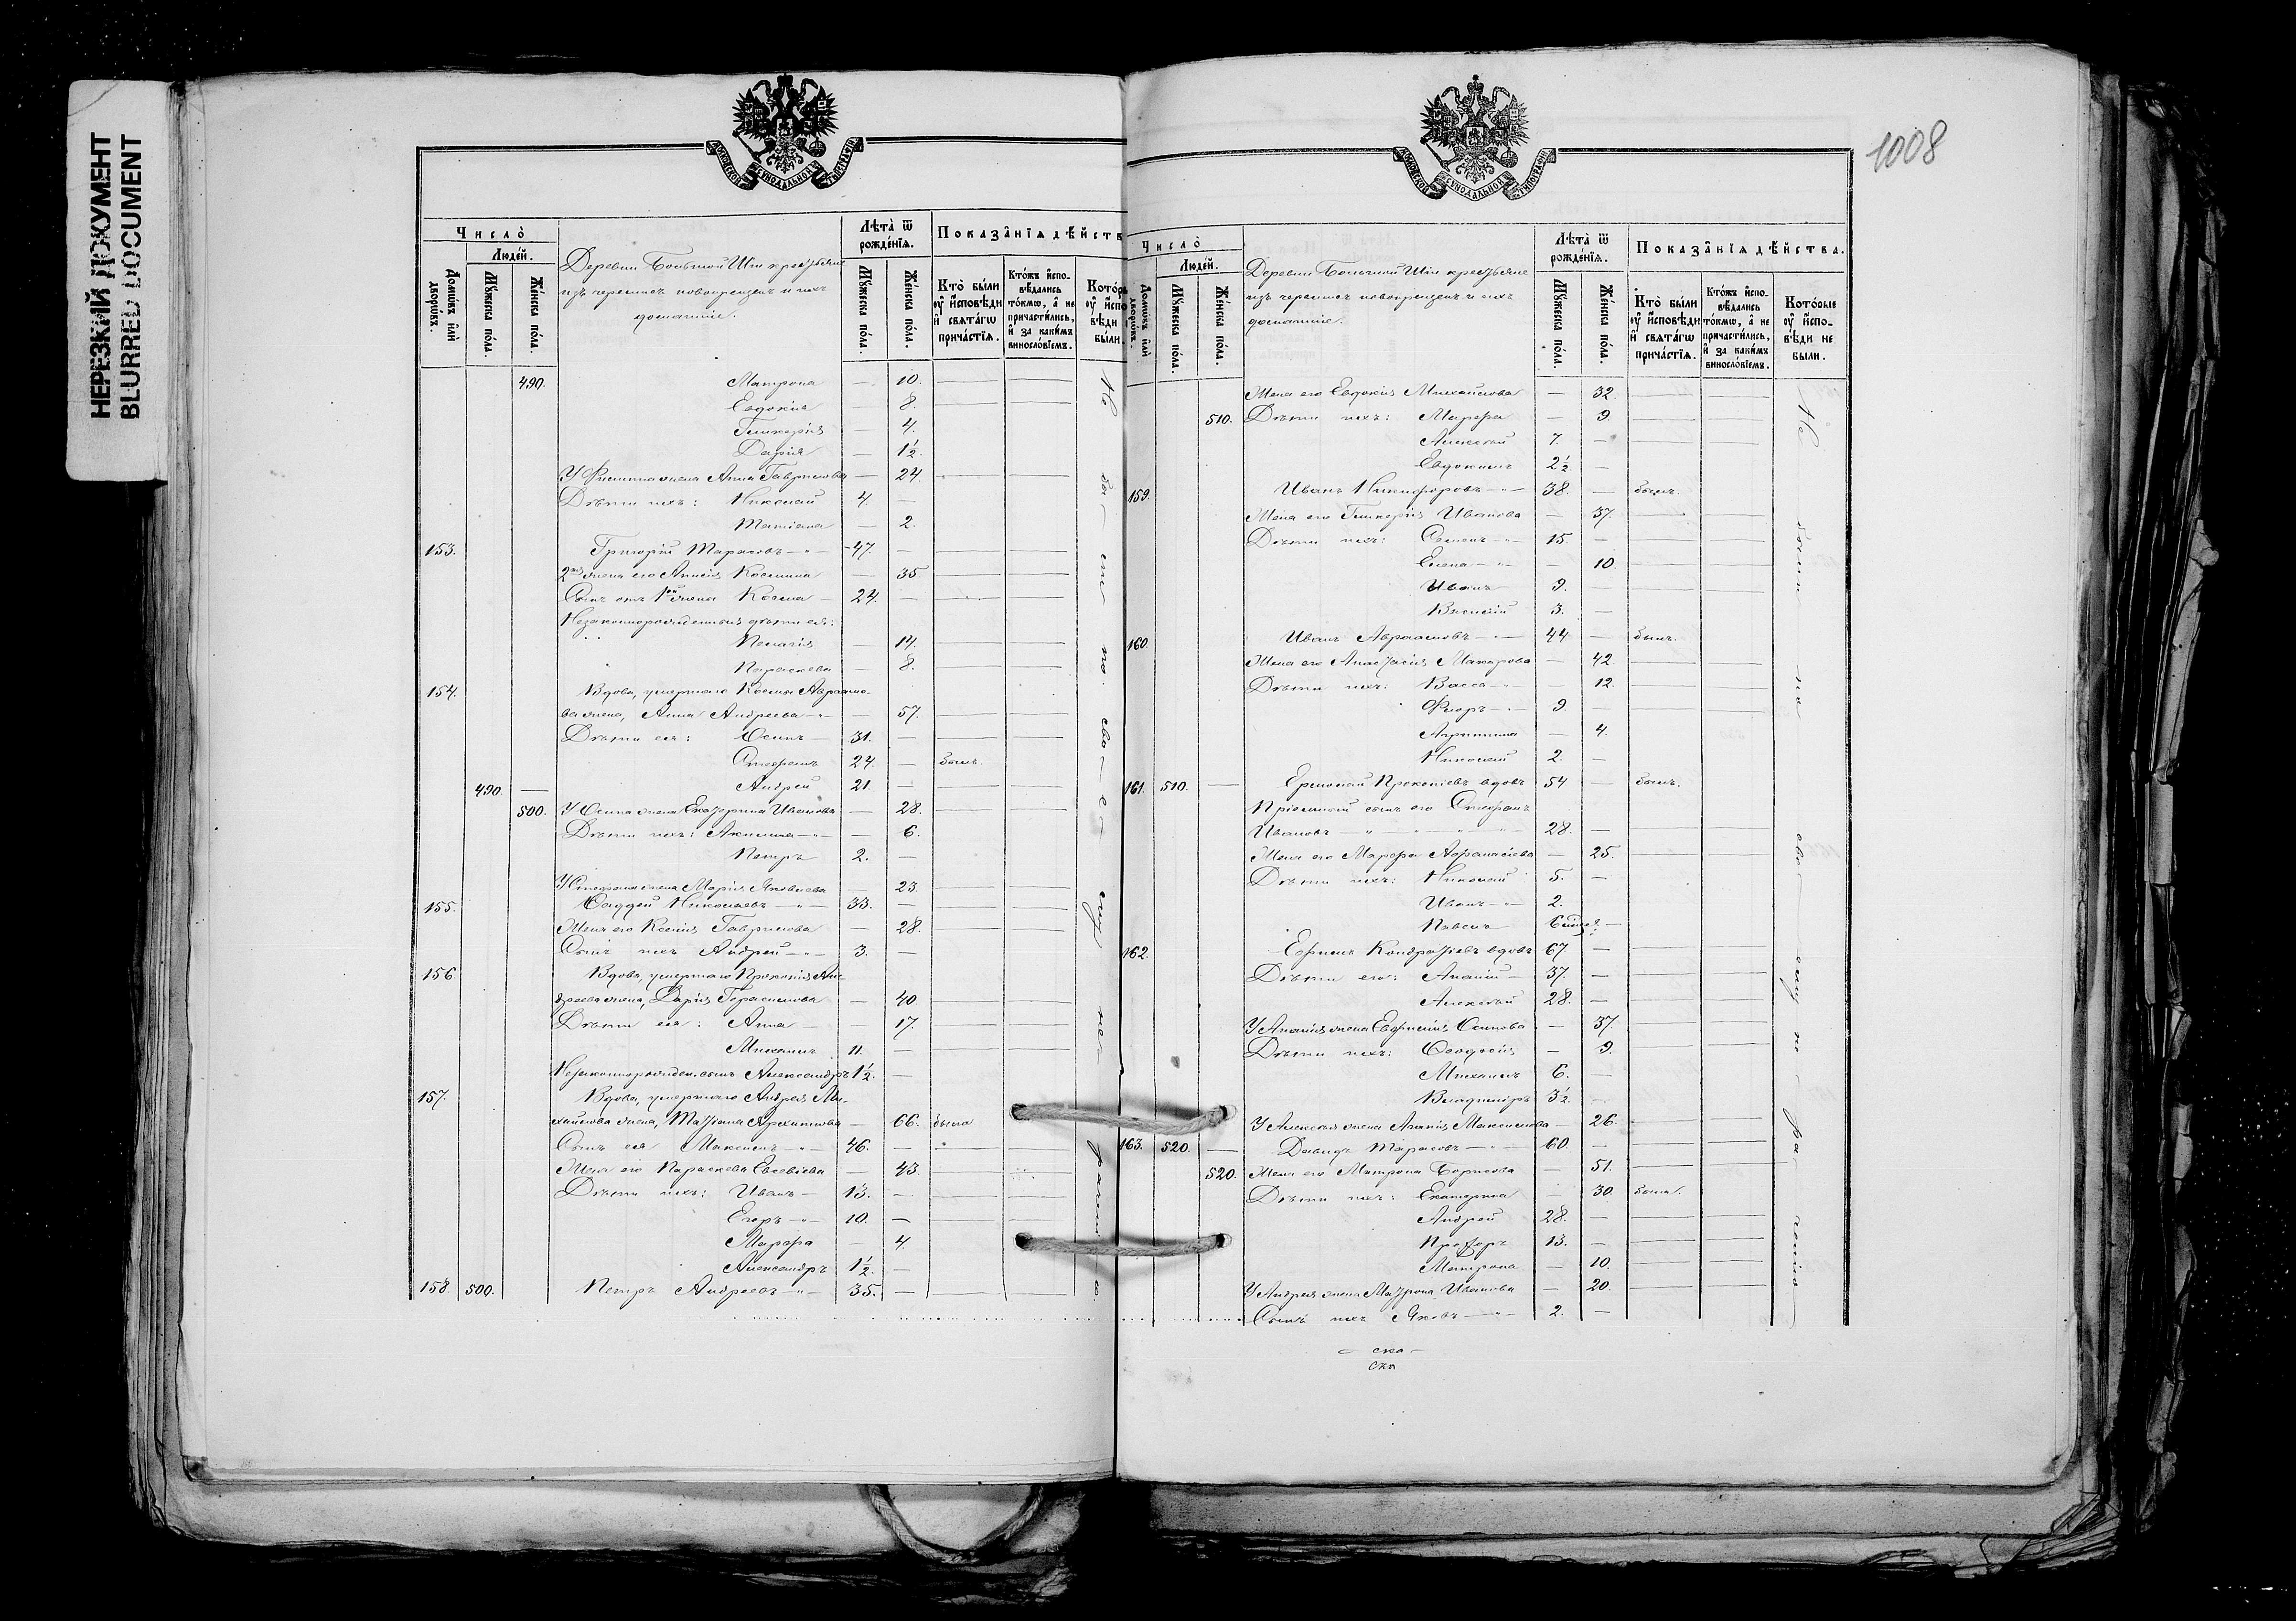 НЕРЕЗКИЙ ДОКУМЕНТ
BLURRED DOCUMENT
МОСКОВСКОЙ СѴНОДАЛЬНОЙ ТѴПОГРАФІИ
Число̀
Людéй.
Домѡ́въ и҆лѝ дворѡ́въ.
Мꙋ́жеска по́ла.
Же́нска по́ла.
Деревни Большой Шіи крестьяне
изъ черемисъ новокрещенъ и ихъ
домашніе.
Лѣта̀ ѿ рожде́нїѧ.
Мꙋ́жеска по́ла.
Же́нска по́ла.
Показа̑нїѧ дѣ́йств
Кто̀ бы́ли ᲂу҆ и҆сповѣ́ди и҆ свѧта́гѡ прича́стїѧ.
Кто́жъ и҆спо-вѣ́дались то́кмѡ, а҆ не причасти́лись, и҆ за каки́мъ винослóвїемъ.
Кото́ры ᲂу҆ и҆спо вѣ́ди бы́ли.
490. Матрона — 10.
Евдокія — 8.
Гликерія — 4.
Дарія — 1½.
У Филиппа жена Анна Гаврилова — 24.
Дѣти ихъ: Николай 4. —
Татіана — 2.
153. Григорій Тарасовъ 47. —
2ая жена его Анисія Космина — 35
Сынъ отъ 1ой жены Косма 24. —
Незаконнорожденныя дѣти ея:
Пелагія — 14.
Параскева — 8.
154. Вдова, умершаго Космы Абрамо-
ва жена, Анна Андреева — 57.
Дѣти ея: Осипъ 31. —
Стефанъ 24. — былъ.
490. — Андрей 21. —
500. У Осипа жена Екатерина Иванова — 28.
Дѣти ихъ: Акилина — 6.
Петръ 2. —
У Стефана жена Марія Яковлева — 23.
155. Фаддей Николаевъ 33. —
Жена его Ксенія Гаврилова — 28.
Сынъ ихъ Андрей 3. —
156 Вдова, умершаго Прокопія Ан-
дреева жена, Дарія Герасимова — 40
Дѣти ея: Анна — 17.
Михаилъ 11. —
Незаконнорожден. сынъ Александръ 1½. —
157. Вдова, умершаго Андрея Ми-
хайлова жена, Татіана Архипова — 66. была
Сынъ ея Максимъ 46. —
Жена его Параскева Евсевіева — 43.
Дѣти ихъ: Иванъ 13. —
Егоръ 10. —
Марѳа — 4.
Александръ 1½. —
158. 500. Петръ Андреевъ 35. —
Не бы-ли по сво-е-му не-раченію.
1008
МОСКОВСКОЙ СѴНОДАЛЬНОЙ ТѴПОГРАФІИ
Число̀
Людéй.
Домѡ́въ и҆лѝ дворѡ́въ.
Мꙋ́жеска по́ла.
Же́нска по́ла.
Деревни Большой Шіи крестьяне
изъ черемисъ новокрещенъ и ихъ
домашніе.
Лѣта̀ ѿ рожде́нїѧ.
Мꙋ́жеска по́ла.
Же́нска по́ла.
Показа̑нїѧ дѣ́йства.
Кто̀ бы́ли ᲂу҆ и҆сповѣ́ди и҆ свѧта́гѡ прича́стїѧ.
Кто́жъ и҆спо-вѣ́дались то́кмѡ, а҆ не причасти́лись, и҆ за каки́мъ винослóвїемъ.
Кото́рые ᲂу҆ и҆спо-вѣ́ди не бы́ли.
Жена его Евдокія Михайлова — 32.
510. Дѣти ихъ: Марѳа — 9.
Алексѣй 7. —
Евдокимъ 2½ —
159. Иванъ Никифоровъ 38. — былъ.
Жена его Гликерія Иванова — 37.
Дѣти ихъ: Семенъ 15. —
Елена — 10.
Иванъ 9. —
Василій 3. —
160. Иванъ Авраамовъ 44 — былъ.
Жена его Анастасія Макарова — 42.
Дѣти ихъ: Васса — 12.
Флоръ 9. —
Агрипина — 4.
Николай 2. —
161. 510. — Ермолай Прокопіевъ вдовъ 54 — былъ.
Пріемный сынъ его Стефанъ
Ивановъ 28. —
Жена его Марѳа Аѳанасіева — 25.
Дѣти ихъ: Николай 5. —
Иванъ 2.
Павелъ 6
162. Ефимъ Кондратіевъ вдовъ 67 —
Дѣти его: Ананій 37. —
Алексѣй 28. —
У Ананія жена Евфимія Осипова — 37.
Дѣти ихъ: Ѳеодосія — 9.
Михаилъ 6. —
Владиміръ 3½. —
У Алексѣя жена Агапія Максимова — 26.
163. 520. — Давидъ Тарасовъ 60 —
520. Жена его Матрона Борисова — 51.
Дѣти ихъ: Екатерина — 30. была.
Андрей 28. —
Прохоръ 13. —
Матрона — 10.
У Андрея жена Матрона Иванова — 20.
Сынъ ихъ Яковъ 2. —
Не были по сво-ему не-ра-ченію
ска
ска